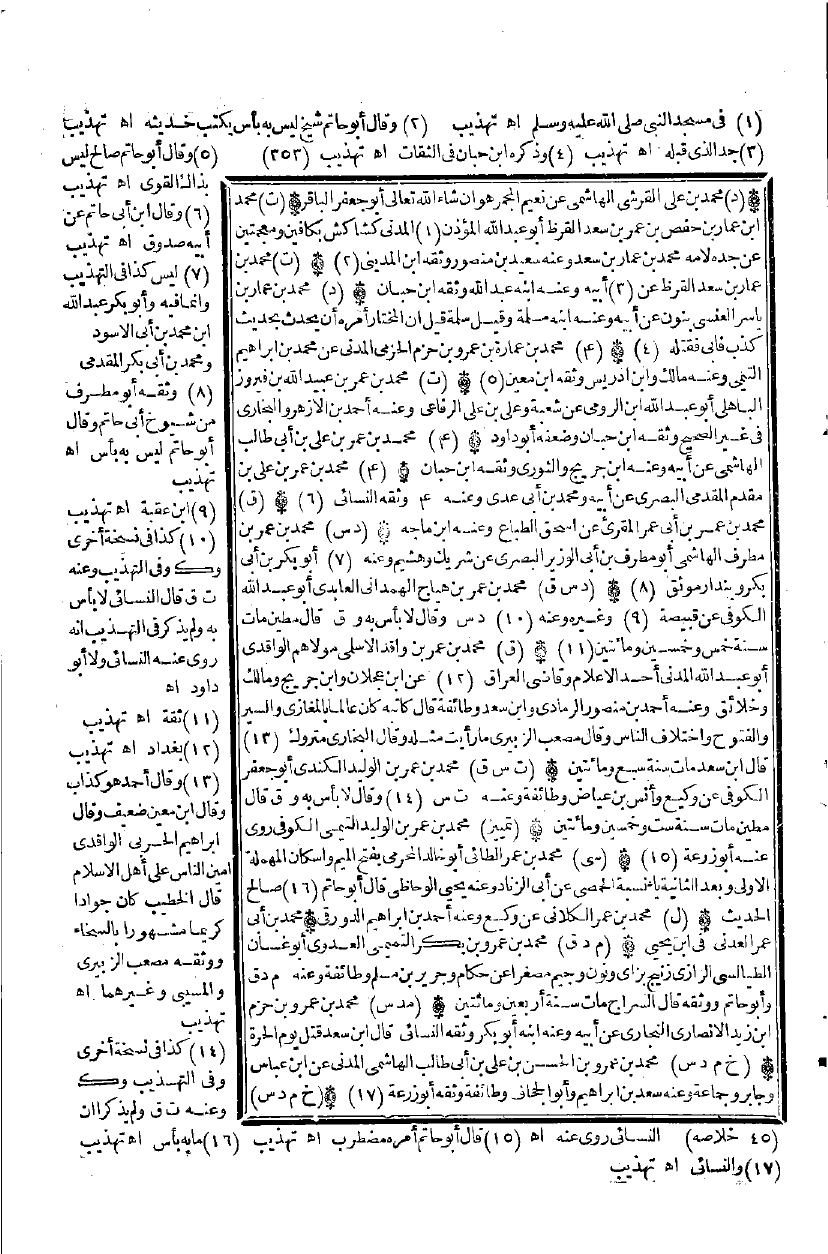 (١) فى مسجد النبى صلى الله عليه وسلم اه تهذيب (٢) وقال أبو حاتم شيخ ليس به بأس يكتب حديثه اه تهذيب
(٣) جد الذى قبله اه تهذيب (٤) وذكره ابن حبان فى الثقات اه تهذيب (٣٥٣) (٥) وقال أبو حاتم صالح ليس
بذاك القوى اه تهذيب
(٦) وقال ابن أبى حاتم عن
أبيه صدوق اه تهذيب
(٧) ليس كذا فى التهذيب
وانما فيه وأبو بكر عبد الله
ابن محمد بن أبى الاسود
ومحمد بن أبى بكر المقدمى
(٨) وثقه أبو مطرف
من شيوخ أبى حاتم وقال
أبو حاتم ليس به بأس اه
تهذيب
(٩) ابن عقبة اه تهذيب
(١٠) كذا فى نسخة أخرى
وك وفى التهذيب وعنه
ت ق قال النسائى لا بأس
به ولم يذكر فى التهذيب انه
روى عنه النسائى ولا أبو
داود اه
(١١) ثقة اه تهذيب
(١٢) بغداد اه تهذيب
(١٣) وقال أحمد هو كذاب
وقال ابن معين ضعيف وقال
ابراهيم الحربى الواقدى
أمين الناس على أهل الاسلام
قال الخطيب كان جوادا
كريما مشهورا بالسخاء
ووثقه مصعب الزبيرى
والمسيبى وغيرهما اه
تهذيب
(١٤) كذا فى نسخة أخرى
وفى التهذيب وك
وعنه ت ق ولم يذكر ان
(د) محمد بن على القرشى الهاشمى عن نعيم المجمر هو ان شاء الله تعالى أبو جعفر الباقر (ت) محمد
ابن عمار بن حفص بن عمر بن سعد القرظ أبو عبد الله المؤذن (١) المدنى كشاكش بكافين ومعجمتين
عن جده لامه محمد بن عمار بن سعد وعنه سعيد بن منصور وثقه ابن المدينى (٢) (ت) محمد بن
عمار بن سعد القرظ عن (٣) أبيه وعنه ابنه عبد الله وثقه ابن حبان (د) محمد بن عمار بن
ياسر العنسى بنون عن أبيه وعنه ابنه سلمة وقيل سلمة قيل ان المختار أمره أن يحدث بحديث
كذب فابى فقتله (٤) (٤) محمد بن عمارة بن عمرو بن حزم الحزمى المدنى عن محمد بن ابراهيم
التيمى وعنه مالك وابن ادريس وثقه ابن معين (٥) (ت) محمد بن عمر بن عبيد الله بن فيروز
الباهلى أبو عبد الله ابن الرومى عن شعبة وعلى بن على الرفاعى وعنه أحمد بن الازهر والبخارى
فى غير الصحيح وثقه ابن حبان وضعفه أبو داود (٤) محمد بن عمر بن على بن أبى طالب
الهاشمى عن أبيه وعنه ابن جريج والثورى وثقه ابن حبان (٤) محمد بن عمر بن على بن
مقدم المقدمى البصرى عن أبيه ومحمد بن أبى عدى وعنه ٤ وثقه النسائى (٦) (ق)
محمد بن عمر بن أبى عمر المقرئ عن اسحق الطباع وعنه ابن ماجه (د س) محمد بن عمر بن
مطرف الهاشمى أبو مطرف بن أبى الوزير البصرى عن شريك وهشيم وعنه (٧) أبو بكر بن أبى
بكر وبندار موثق (٨) (د س ق) محمد بن عمر بن هياج الهمدانى العابدى أبو عبد الله
الكوفى عن قبيصة (٩) وغيره وعنه (١٠) د س وقال لا بأس به و ق قال مطين مات
سنة خمس وخمسين ومائتين (١١) (ق) محمد بن عمر بن واقد الاسلمى مولاهم الواقدى
أبو عبد الله المدنى أحد الاعلام وقاضى العراق (١٢) عن ابن عجلان وابن جريج ومالك
وخلائق وعنه أحمد بن منصور الرمادى وابن سعد وطائفة قال كاتبه كان عالما بالمغازى والسير
والفتوح واختلاف الناس وقال مصعب الزبيرى ما رأيت مثله وقال البخارى متروك (١٣)
قال ابن سعد مات سنة سبع ومائتين (ت س ق) محمد بن عمر بن الوليد الكندى أبو جعفر
الكوفى عن وكيع وأنس بن عياض وطائفة وعنه ت س (١٤) وقال لا بأس به و ق قال
مطين مات سنة ست وخمسين ومائتين (تمييز) محمد بن عمر بن الوليد التيمى الكوفى روى
عنه أبو زرعة (١٥) (سى) محمد بن عمر الطائى أبو خالد المحرمى بفتح الميم واسكان المهملة
الاولى وبعد الثانية ياء نسبة الحمصى عن أبى الزناد وعنه يحيى الوحاظى قال أبو حاتم (١٦) صالح
الحديث (ل) محمد بن عمر الكلاعى عن وكيع وعنه أحمد بن ابراهيم الدورقى محمد بن أبى
عمر العدنى فى ابن يحيى (م د ق) محمد بن عمرو بن بكر التميمى العدوى أبو غسان
الطيالسى الرازى زنيج بزاى ونون وجيم مصغرا عن حكام وجرير بن مسلم وطائفة وعنه م د ق
وأبو حاتم ووثقه قال السراج مات سنة أربعين ومائتين (مد س) محمد بن عمرو بن حزم
ابن زيد الانصارى النجارى عن أبيه وعنه ابنه أبو بكر وثقه النسائى قال ابن سعد قتل يوم الحرة
(خ م د س) محمد بن عمرو بن الحسن بن على بن أبى طالب الهاشمى المدنى عن ابن عباس
وجابر وجماعة وعنه سعد بن ابراهيم وأبو الجحاف وطائفة وثقه أبو زرعة (١٧) (خ م د س)
(٤٥ خلاصه) النسائى روى عنه اه (١٥) قال أبو حاتم أمره مضطرب اه تهذيب (١٦) ما به بأس اه تهذيب
(١٧) والنسائى اه تهذيب